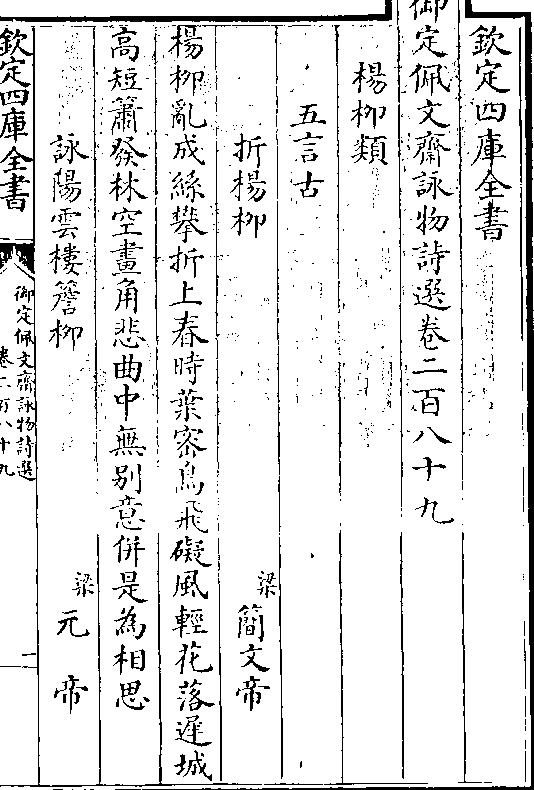 欽定四庫全書
御定佩文齋詠物詩選卷二百八十九
楊柳類
五言古
折楊柳
梁簡文帝
楊柳亂成絲攀折上春時葉宻鳥飛礙風輕花落遲城
高短簫發林空畫角悲曲中無别意併是為相思
詠陽雲樓簷柳
梁元帝
欽定四庫全書
御定佩文齋詠物詩選
卷二百八十九
一